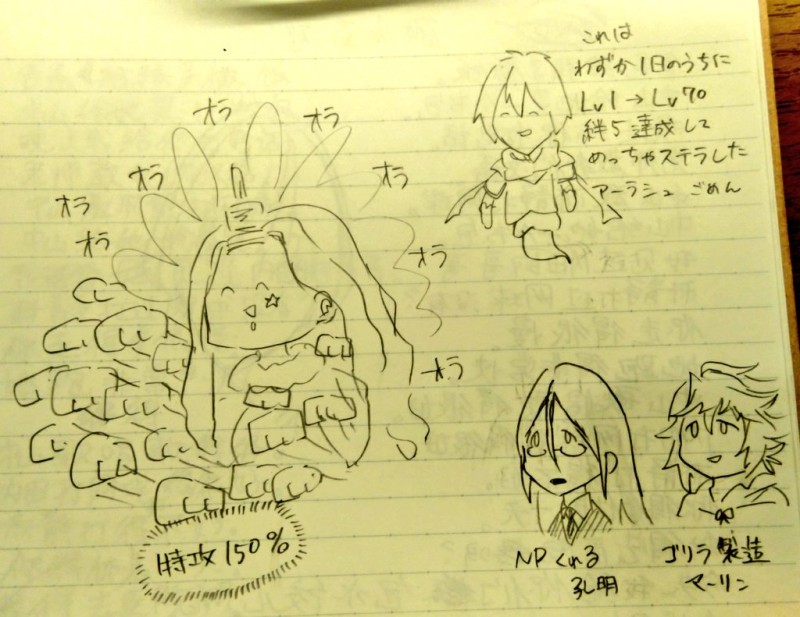 オラ
オラ
オラ
オラ
オラ
オラ
オラ
オラ
特攻150%
これは
わずか1日のうちに
Lv1→Lv70
絆5達成して
めっちゃステラした
アーラシュ ごめん
NPくれる
孔明
ゴリラ製造
マーリン